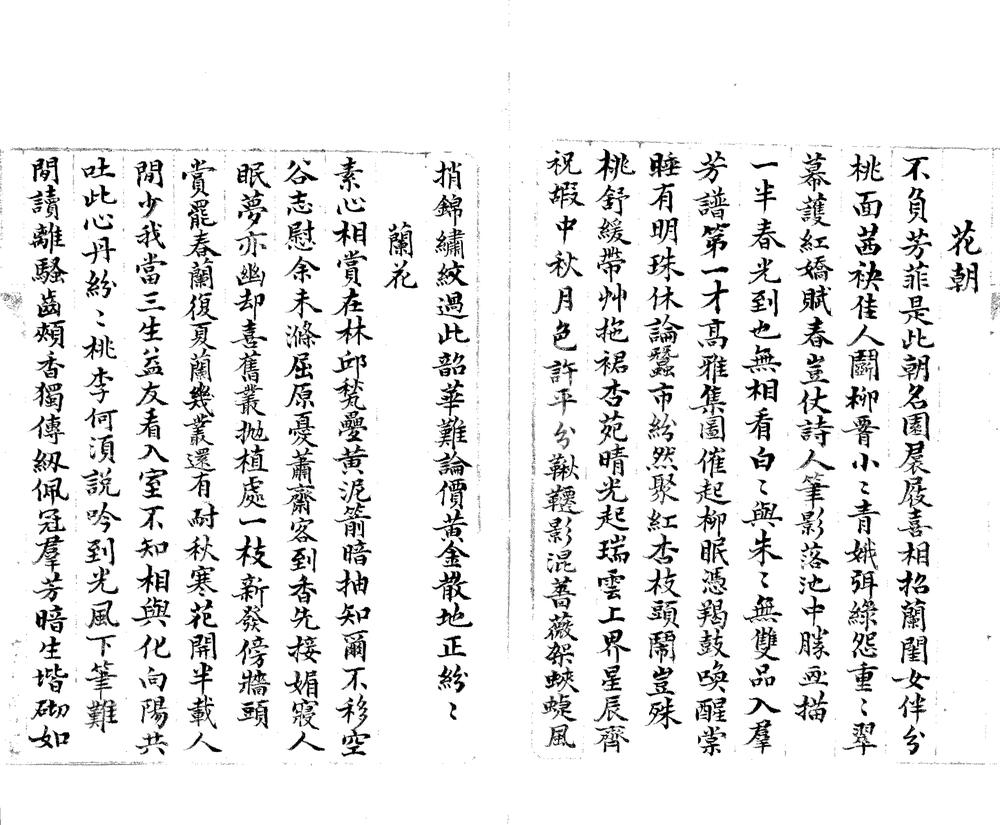 花朝
不負芳菲是此朝名園屐屐喜相招蘭閨女伴分
桃面茜袂佳人鬭柳腰小〻青娥弭綠怨重〻翠
幕護紅嬌賦春豈仗詩人筆影落池中勝畫描
一半春光到也無相看白〻與朱〻無雙品入羣
芳譜第一才高雅集圖催起柳眠憑羯鼓喚醒棠
睡有明珠休論蠶市紛然聚紅杏枝頭鬧豈殊
桃舒緩帶艸拖裙杏苑晴光起瑞雲上界星辰齊
祝嘏中秋月色許平分鞦韆影混薔薇架蛺蜨風
捎錦繡紋過此韶華難論價黃金散地正紛〻
蘭花
素心相賞在林邱甃疊黃泥箭暗抽知爾不移空
谷志慰余未滌屈原憂蕭齋客到香先接媚寢人
眠夢亦幽却喜舊叢拋植處一枝新發傍牆頭
賞罷春蘭復夏蘭幾叢還有耐秋寒花開半載人
閒少我當三生益友看入室不知相與化向陽共
吐此心丹紛〻桃李何須説吟到光風下筆難
閒讀離騷齒頰香獨傳紉佩冠羣芳暗生堦砌如